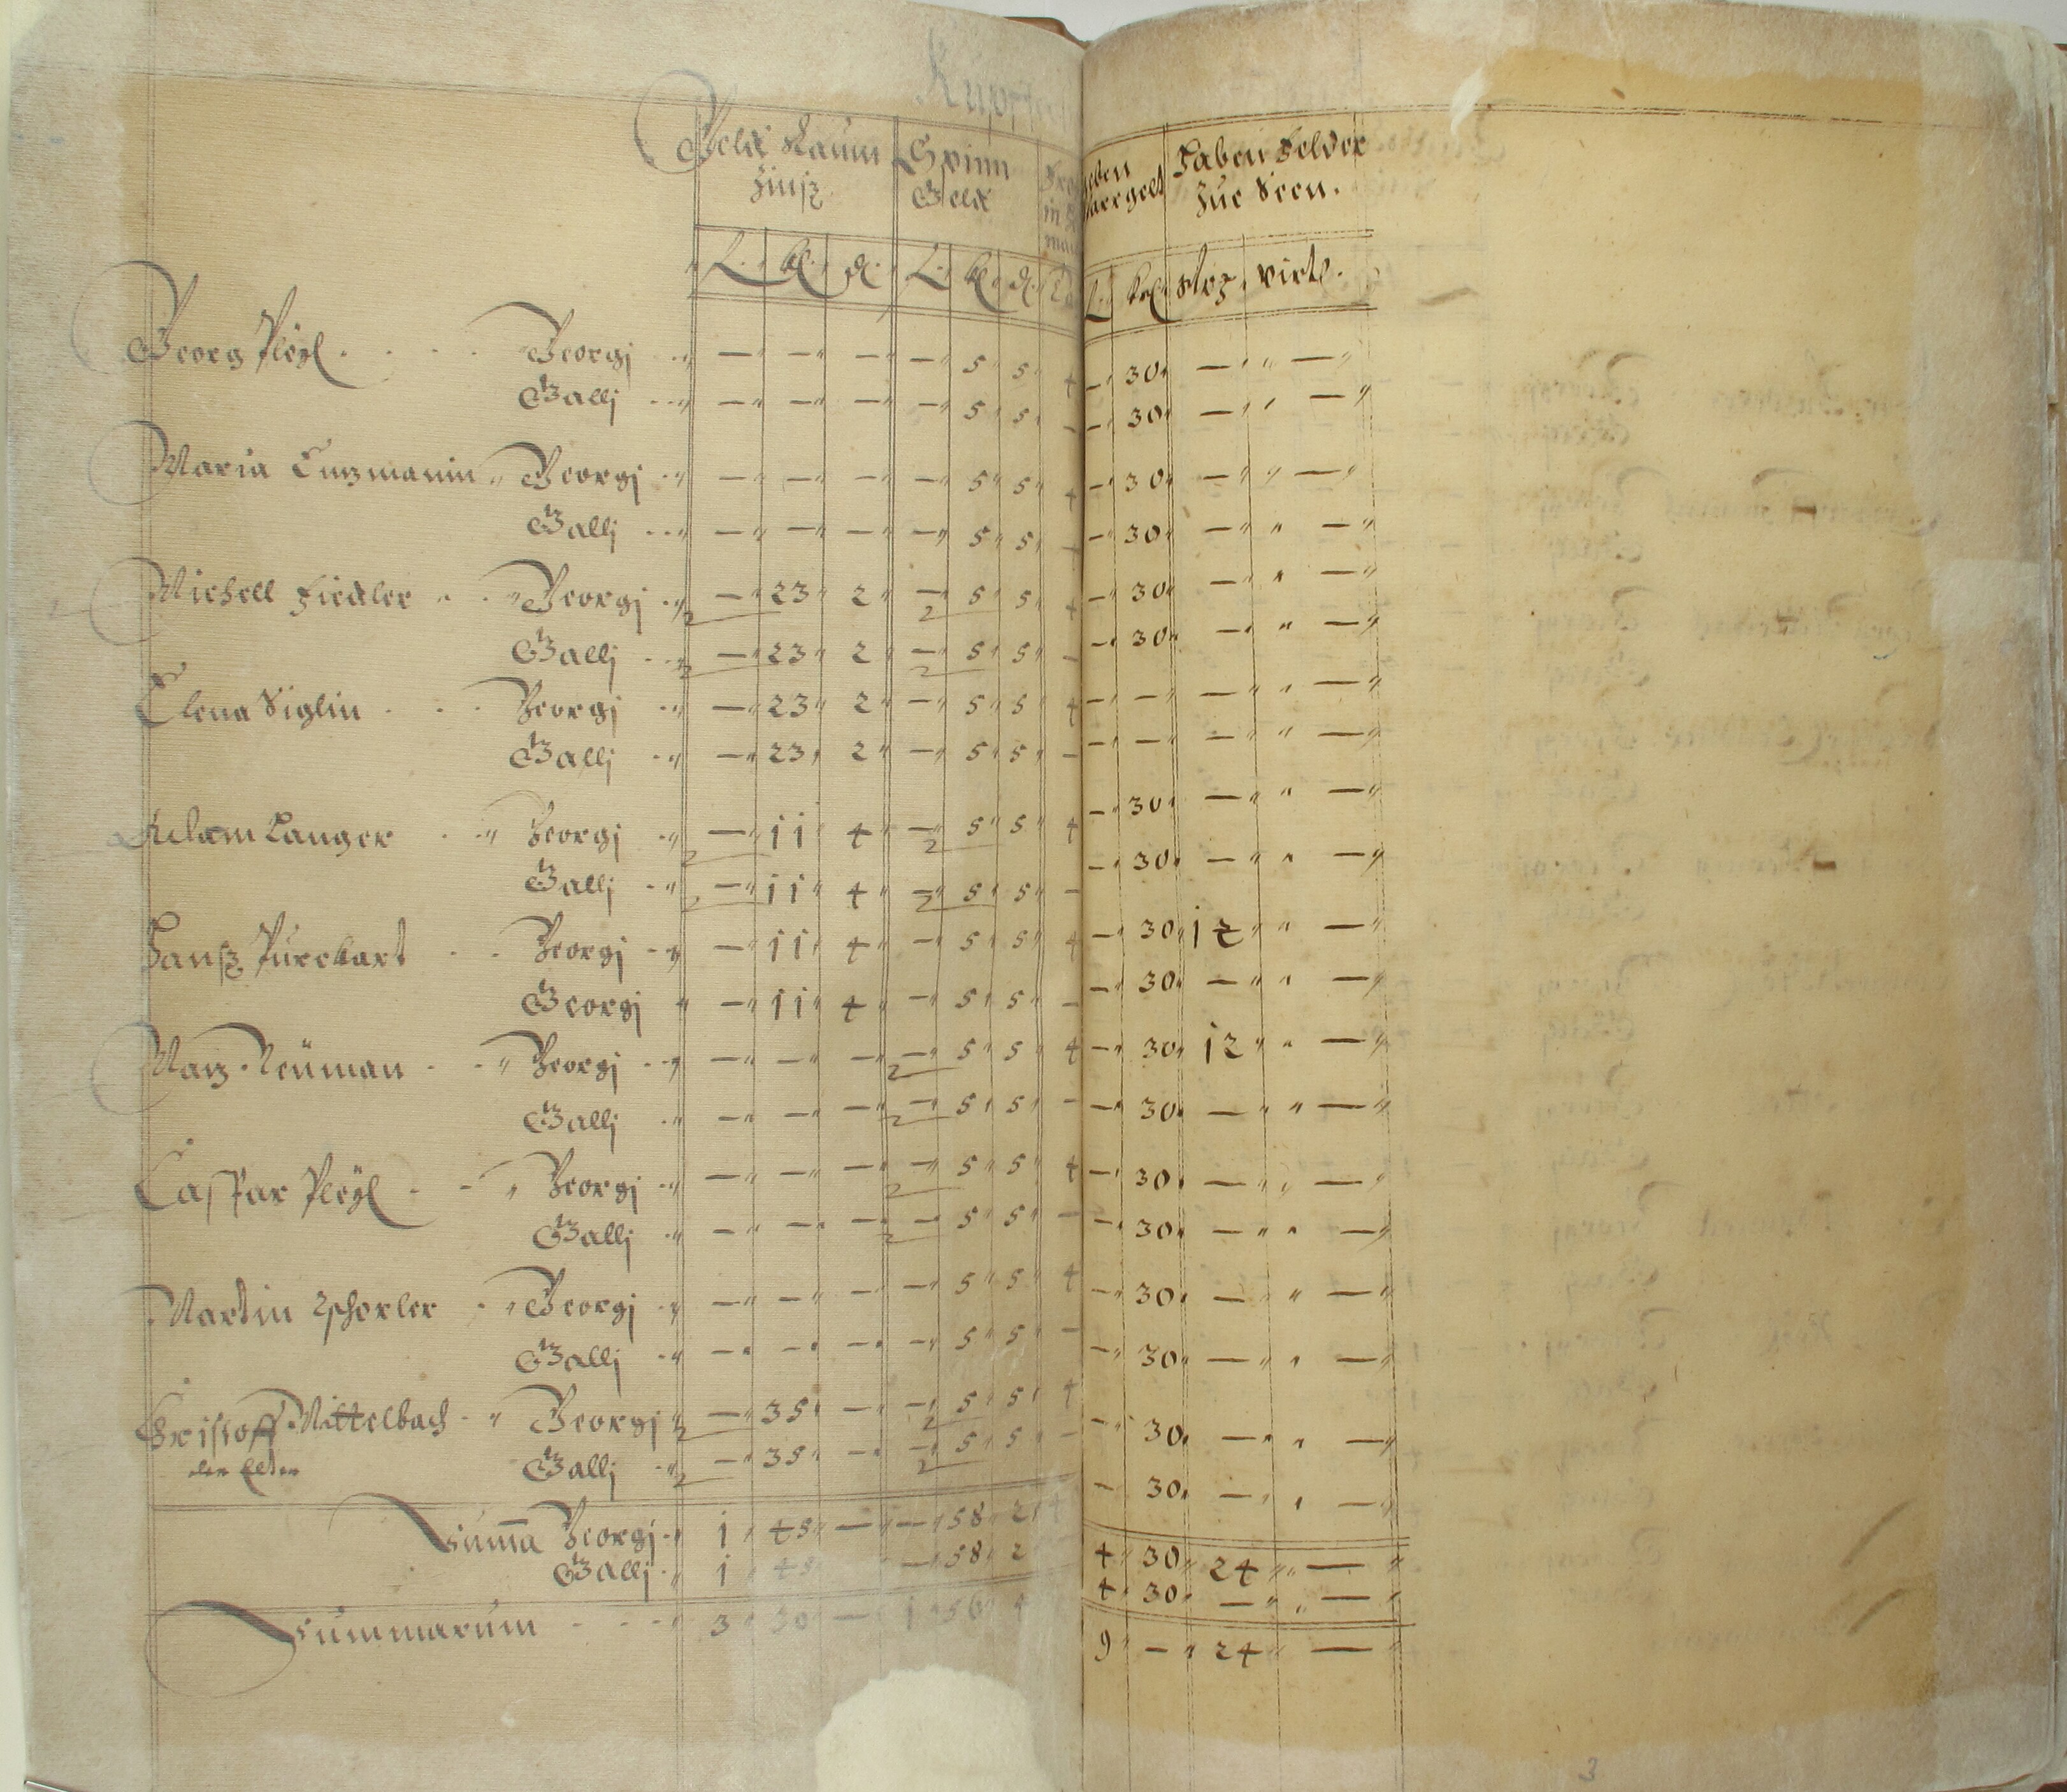 Kupffer
Geldt Raum Spinn Haben Felder
Zinß Geldt Zue Seen.
fl. kl. d. fl. kl. d. fl. krl. Strz. virtl.
Georg Pleÿl Georgj — — — — 5 5 4 — 30 — —
Gallj — — — — 5 5 — — 30 — —
Maria Enzmanin Georgj — — — — 5 5 4 — 30 — —
Gallj — — — — 5 5 — — 30 — —
Michell Fiedler Georgj — 23 2 — 5 5 4 — 30 — —
Gallj — 23 2 — 5 5 — — 30 — —
Elena Siglin Georgj — 23 2 — 5 5 4 — — — —
Gallj — 23 2 — 5 5 — — — — —
Adam Langer Georgj — 11 4 — 5 5 4 — 30 — —
Gallj — 11 4 — 5 5 — — 30 — —
Hanß Purckart Georgj — 11 4 — 5 5 4 — 30 12 —
Georgj — 11 4 — 5 5 — — 30 — —
Matz Neüman Georgj — — — — 5 5 4 — 30 12 —
Gallj — — — — 5 5 — — 30 — —
Caspar Pleÿl Georgj — — — — 5 5 4 — 30 — —
Gallj — — — — 5 5 — — 30 — —
Martin Zschorler Georgj — — — — 5 5 4 — 30 — —
Gallj — — — — 5 5 — — 30 — —
Christoff Mittelbach Georgj — 35 — — 5 5 4 — 30 — —
der Elter Gallj — 35 — — 5 5 — — 30 — —
Summa Georgj 1 45 — — 58 2 4 4 30 24 —
Gallj 1 45 — 58 2 4 30 — —
Summarum 3 30 — 1 56 4 9 — 24 —
3